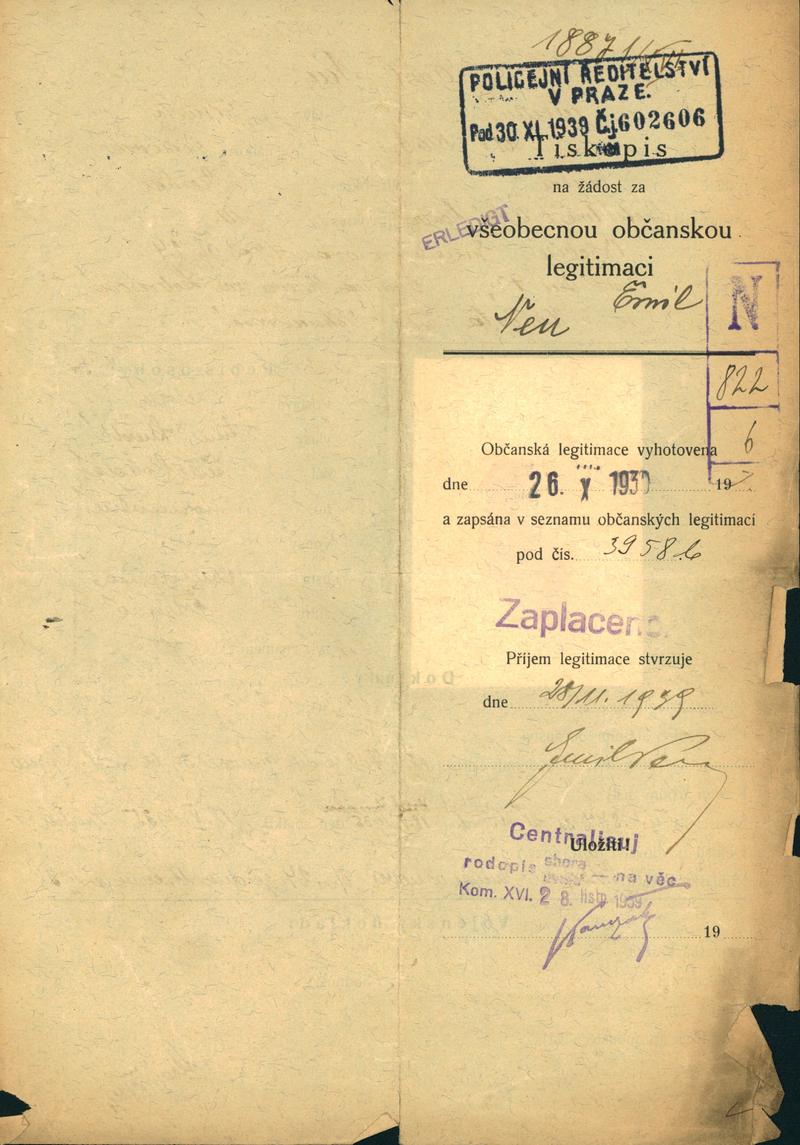 1887
POLICEJNÍ ŘEDITELSTVÍ
V PRAZE.
Pod 30. XI. 1939 Čj 602606
Tiskopis
na žádost za
ERLEDIGT
všeobecnou občanskou
legitimaci
Neu Emil
N
822
6
Občanská legitimace vyhotovena
dne 26. X 1939 19
a zapsána v seznamu občanských legitimací
pod čís. 3958
Zaplaceno
Příjem legitimace stvrzuje
dne 28/11. 1939
Emil Neu
Centralisuj
Uložiti!
rodopis sbera na věc
Kom. XVI. 28. listo 1939
19